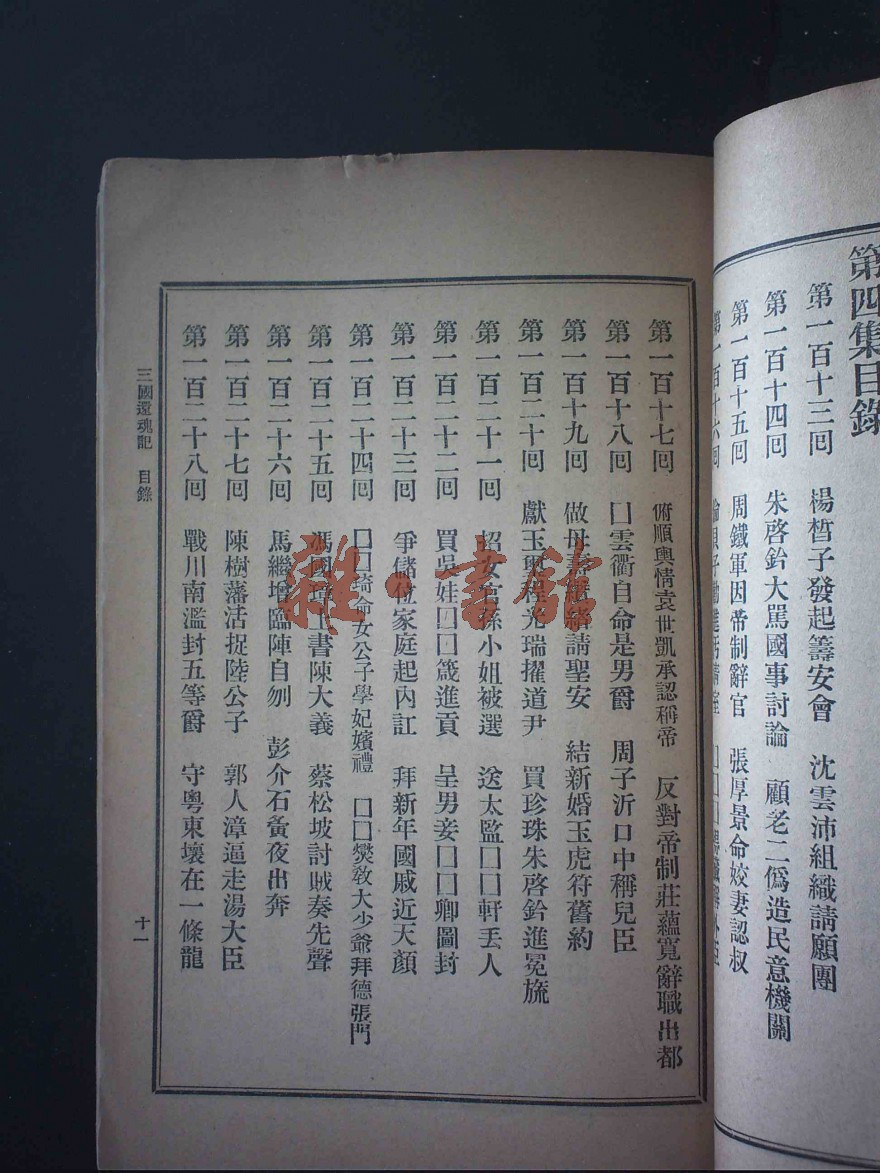 第四集目錄
第一百十三囘　楊晳子發起籌安會　沈雲沛組織請願團
第一百十四囘　朱啓鈐大駡國事討論　顧老二僞造民意機關
第一百十五囘　周鐵軍因帝制辭官　張厚景命姣妻認叔
第一百十六囘
第一百十七囘　俯順輿情袁世凱承認稱帝　反對帝制莊蘊寬辭職出都
第一百十八囘　囗雲衢自命是男爵　周子沂口中稱兒臣
第一百十九囘　做母壽　緒請聖安　結新婚玉虎符舊約
第一百二十囘　獻玉　程光瑞擢道尹　買珍珠朱啓鈐進冕旒
第一百二十一囘　招女官孫小姐被選　送太監囗囗軒丟人
第一百二十二囘　買吳娃囗囗箴進貢　呈男妾囗囗卿圖封
第一百二十三囘　爭儲位家庭起內訌　拜新年國戚近天顏
第一百二十四囘　囗囗琦命女公子學妃嬪禮　囗囗爕敎大少爺拜德張門
第一百二十五囘　馮國璋上書陳大義　蔡松坡討賊奏先聲
第一百二十六囘　馬繼增臨陣自刎　彭介石黃夜出奔
第一百二十七囘　陳樹藩活捉陸公子　郭人漳逼走湯大臣
第一百二十八囘　戰川南濫封五等爵　守粤東壞在一條龍
三國還魂記　目錄
十一
雜·書館